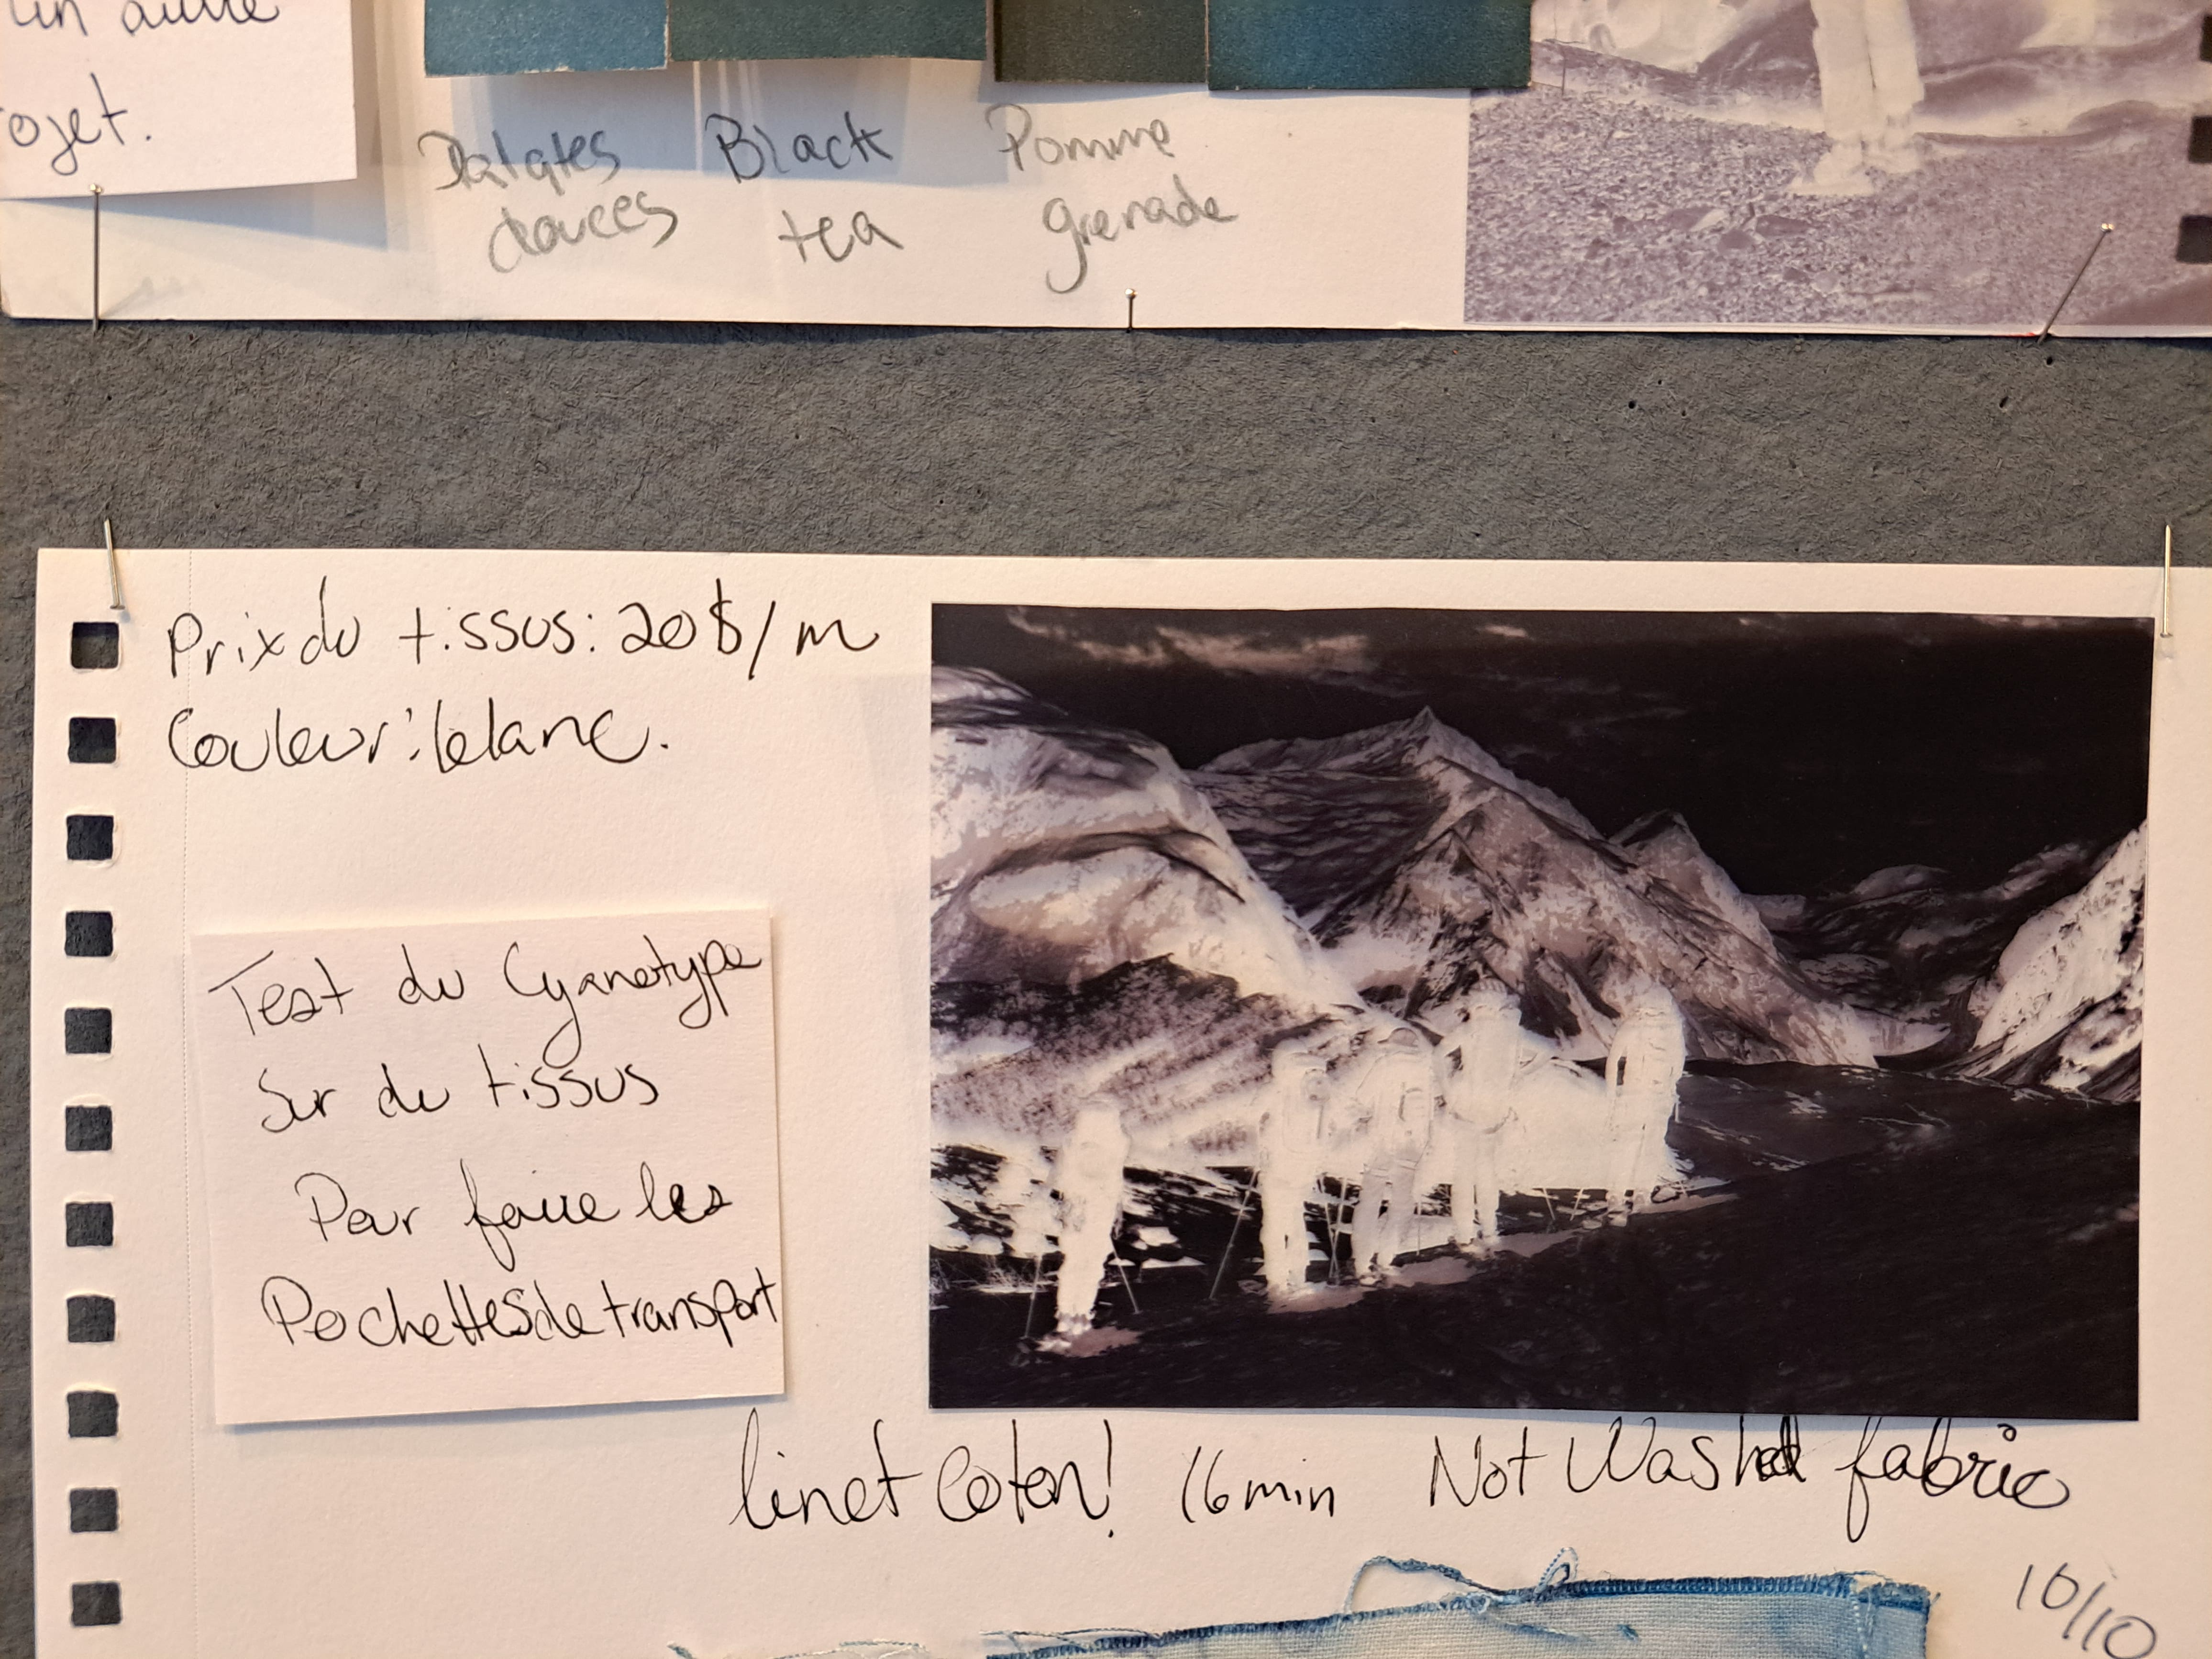 un autre
ojet.
Patates Black Pomme
douces tea grenade
Prix du tissus: 20$/m
Couleur: blanc.
Test du Cyanotype
Sur du tissus
Pour faire les
Pochettes de transport
lin et Coton! 16 min Not Washed fabric
10/10